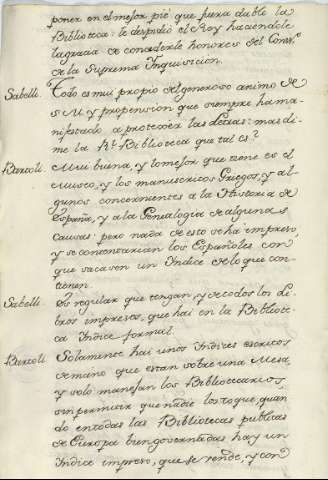 poner en el mejor pie que fuera dable la
Biblioteca: le despidió el Rey haciendole
la grada de concederle honores del Consº.
de la Suprema Inquisicion.
Sabelli. Todo es mui propio del generoso animo de
S. M. y propension que siempre ha ma-
nifestado a proteger a las Letras: mas di-
me la Rˡ. Biblioteca que tal es?
Bartoli. Mui buena, y lo mejor que tiene es el
Museo, y los manuscritos Griegos, y al-
gunos concernientes a la Historia de
España, y a la Genealogia de algunas
causas: pero nada de esto se há impreso,
y se contentarian los Españoles con
que sacasen un Indice de lo que con-
tienen.
Sabelli. Es regular que tengan, y de todos los Li-
bros impresos, que hai en la Bibliote-
ca Indice formal.
Bartoli. Solamente hai unos Indices escritos
de mano que estan sobre una Mesa,
y solo manejan los Bibliotecarios,
sin permitir que nadie los toque, quan-
do en todas las Bibliotecas publicas
de Europa bien governadas hay un
Indice impreso, que se vende, y con